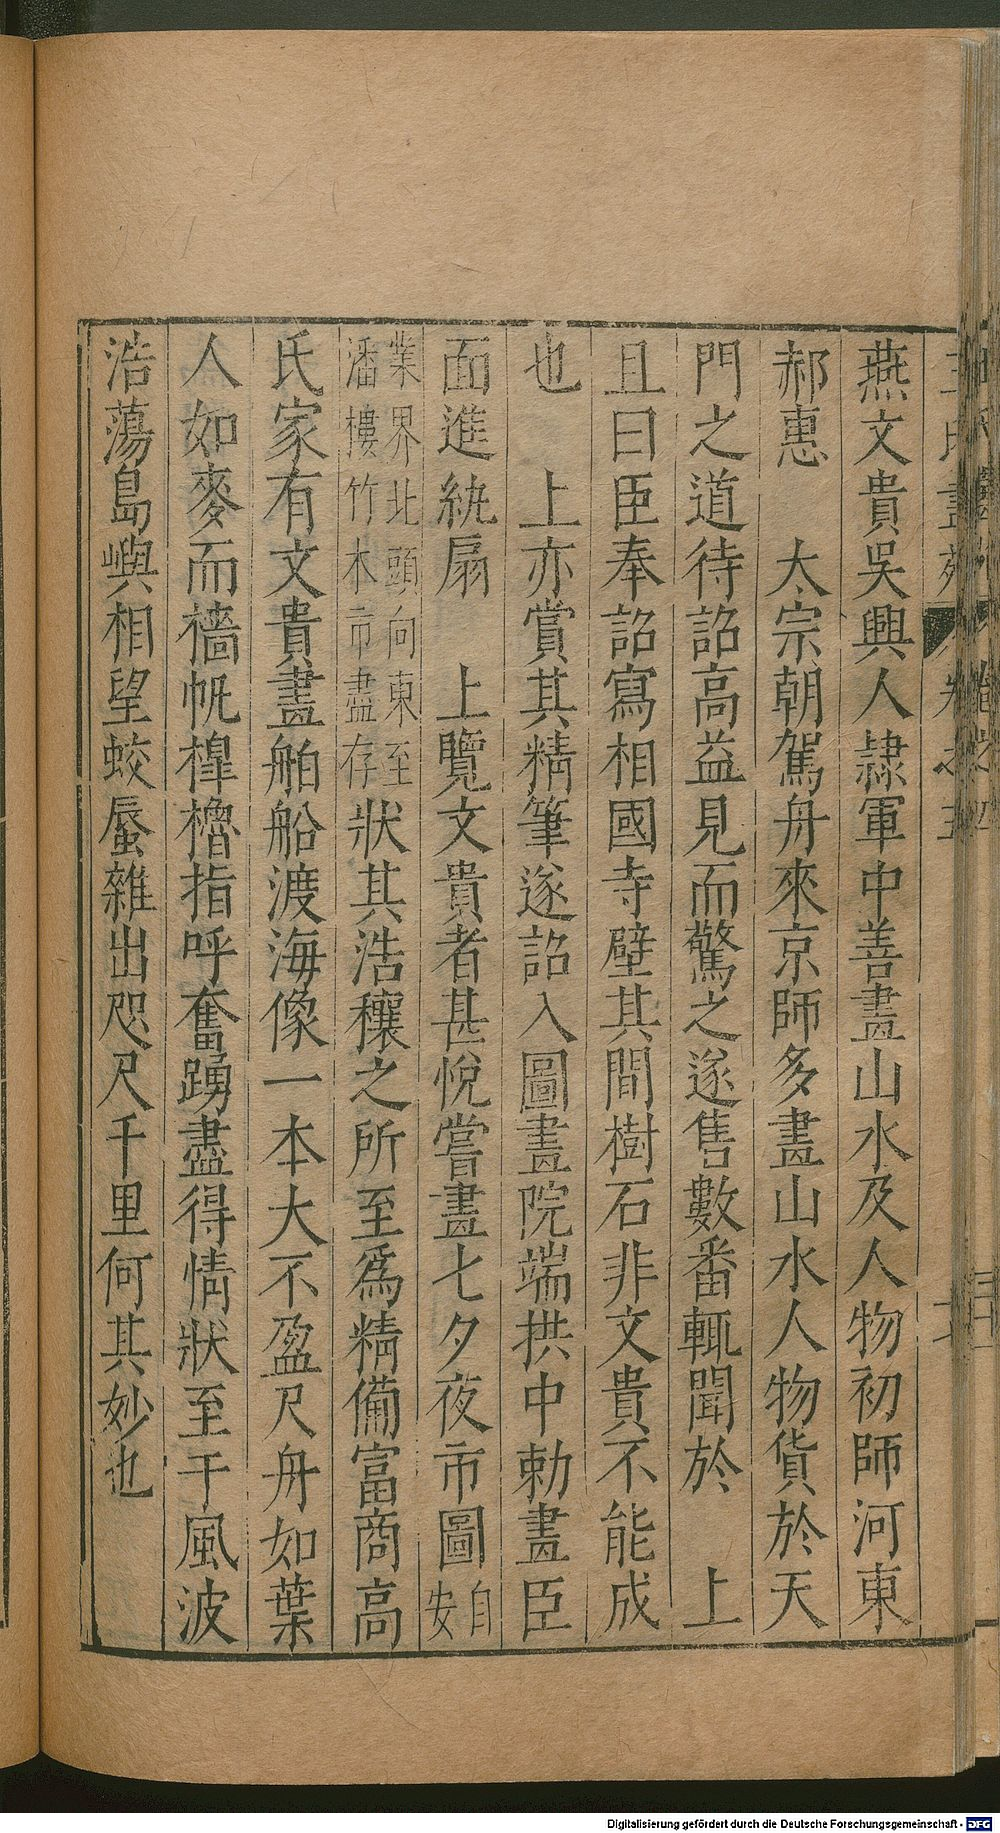 燕文貴吳興人隷軍中善畫山水及人物初師河東
郝惠　太宗朝駕舟來京師多畫山水人物貨於天
門之道待詔高益見而驚之遂售數番輒聞於　上
且曰臣奉詔寫相國寺壁其間樹石非文貴不能成
也　上亦賞其精筆遂詔入圖畫院端拱中勅畫臣
面進紈扇　上覽文貴者甚悅嘗畫七夕夜市圖自安
業界北頭向東至潘樓竹木市盡存狀其浩穰之所至爲精備富商高
氏家有文貴畫舶船渡海像一本大不盈尺舟如葉
人如麥而檣帆槹櫓指呼奮踴盡得情狀至于風波
浩蕩島嶼相望蛟蜃雜出咫尺千里何其妙也
Digitalisierung gefördert durch die Deutsche Forschungsgemeinschaft - DFG